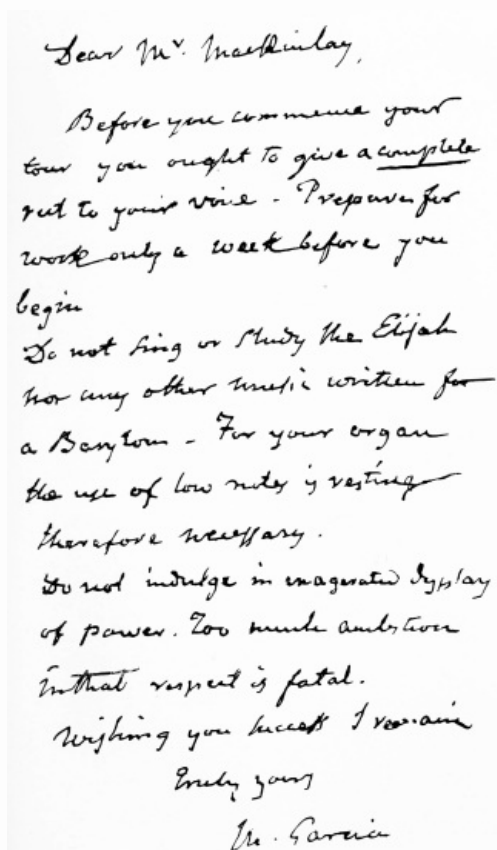 Dear Mr. MacKinlay,
Before you commence your
tour you ought to give a complete
rest to your voice - Prepare for
work only a week before you
begin
Do not sing or study the Elijah
nor any other music written for
a Barytone - For your organ
the use of low notes is resting
therefore necessary.
Do not indulge in exagerated dysplay
of power. Too much ambition
in that respect is fatal.
Wishing you success I remain
Truly yours
M. Garcia